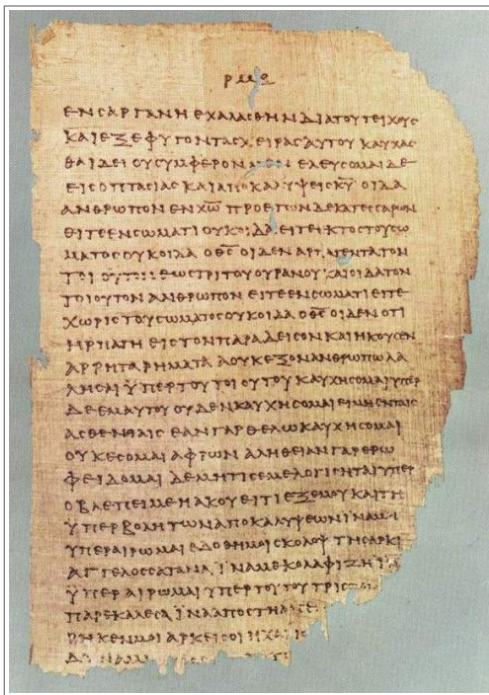 ρμθ
ΕΝ ΣΑΡΓΑΝΗ ΕΧΑΛΑΣΘΗΝ ΔΙΑ ΤΟΥ ΤΕΙΧΟΥΣ
ΚΑΙ ΕΞΕΦΥΓΟΝ ΤΑΣ ΧΕΙΡΑΣ ΑΥΤΟΥ ΚΑΥΧΑΣ
ΘΑΙ ΔΕΙ ΟΥ ΣΥΜΦΕΡΟΝ ΕΛΕΥΣΟΜΑΙ ΔΕ
ΕΙΣ ΟΠΤΑΣΙΑΣ ΚΑΙ ΑΠΟΚΑΛΥΨΕΙΣ Κ̅Υ̅ ΟΙΔΑ
ΑΝΘΡΩΠΟΝ ΕΝ Χ̅Ω̅ ΠΡΟ ΕΤΩΝ ΔΕΚΑΤΕΣΣΑΡΩΝ
ΕΙΤΕ ΕΝ ΣΩΜΑΤΙ ΟΥΚ ΟΙΔΑ ΕΙΤΕ ΕΚΤΟΣ ΤΟΥ ΣΩ
ΜΑΤΟΣ ΟΥΚ ΟΙΔΑ Ο Θ̅Σ̅ ΟΙΔΕΝ ΑΡΠΑΓΕΝΤΑ ΤΟΝ
ΤΟΙΟΥΤΟΝ ΕΩΣ ΤΡΙΤΟΥ ΟΥΡΑΝΟΥ ΚΑΙ ΟΙΔΑ ΤΟΝ
ΤΟΙΟΥΤΟΝ ΑΝΘΡΩΠΟΝ ΕΙΤΕ ΕΝ ΣΩΜΑΤΙ ΕΙΤΕ
ΧΩΡΙΣ ΤΟΥ ΣΩΜΑΤΟΣ ΟΥΚ ΟΙΔΑ Ο Θ̅Σ̅ ΟΙΔΕΝ ΟΤΙ
ΗΡΠΑΓΗ ΕΙΣ ΤΟΝ ΠΑΡΑΔΕΙΣΟΝ ΚΑΙ ΗΚΟΥΣΕΝ
ΑΡΡΗΤΑ ΡΗΜΑΤΑ Α ΟΥΚ ΕΞΟΝ ΑΝΘΡΩΠΩ ΛΑ
ΛΗΣΑΙ ΫΠΕΡ ΤΟΥ ΤΟΙΟΥΤΟΥ ΚΑΥΧΗΣΟΜΑΙ ΥΠΕΡ
ΔΕ ΕΜΑΥΤΟΥ ΟΥΔΕΝ ΚΑΥΧΗΣΟΜΑΙ ΕΙ ΜΗ ΕΝ ΤΑΙΣ
ΑΣΘΕΝΙΑΙΣ ΕΑΝ ΓΑΡ ΘΕΛΩ ΚΑΥΧΗΣΟΜΑΙ
ΟΥΚ ΕΣΟΜΑΙ ΑΦΡΩΝ ΑΛΗΘΕΙΑΝ ΓΑΡ ΕΡΩ
ΦΕΙΔΟΜΑΙ ΔΕ ΜΗ ΤΙΣ ΕΜΕ ΛΟΓΙΣΗΤΑΙ ΥΠΕΡ
Ο ΒΛΕΠΕΙ ΜΕ Η ΑΚΟΥΕΙ ΤΙ ΕΞ ΕΜΟΥ ΚΑΙ ΤΗ
ΫΠΕΡΒΟΛΗ ΤΩΝ ΑΠΟΚΑΛΥΨΕΩΝ ΪΝΑ ΜΗ
ΥΠΕΡΑΙΡΩΜΑΙ ΕΔΟΘΗ ΜΟΙ ΣΚΟΛΟΨ ΤΗ ΣΑΡΚΙ
ΑΓΓΕΛΟΣ ΣΑΤΑΝΑ ΪΝΑ ΜΕ ΚΟΛΑΦΙΖΗ
ΫΠΕΡΑΙΡΩΜΑΙ ΥΠΕΡ ΤΟΥΤΟΥ ΤΡΙΣ
ΠΑΡΕΚΑΛΕΣΑ ΪΝΑ ΑΠΟΣΤΗ
ΡΗΚΕΝ ΜΟΙ ΑΡΚΕΙ ΣΟΙ Η